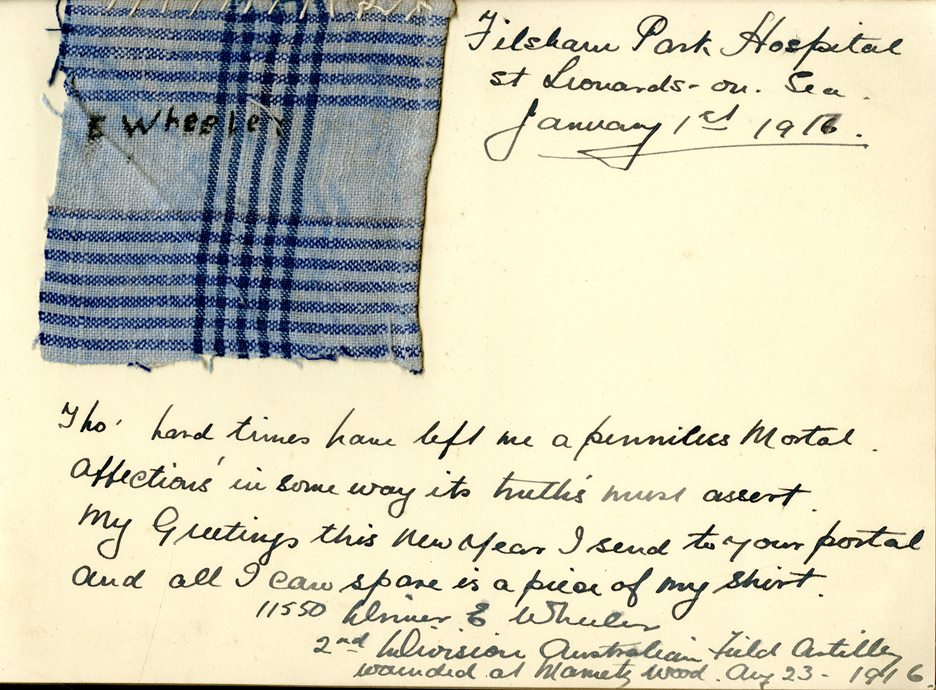 E Wheeler
Filsham Park Hospital
St Leonards-on-Sea.
January 1st 1916.
Tho' hard times have left me a penniless Mortal.
Affections in some way its truths must assert.
My Greetings this New Year I send to your portal
and all I can spare is a piece of my shirt.
11550 Driver E Wheeler
2nd Division Australian Field Artillery
wounded at Mametz Wood. Aug 23 - 1916.